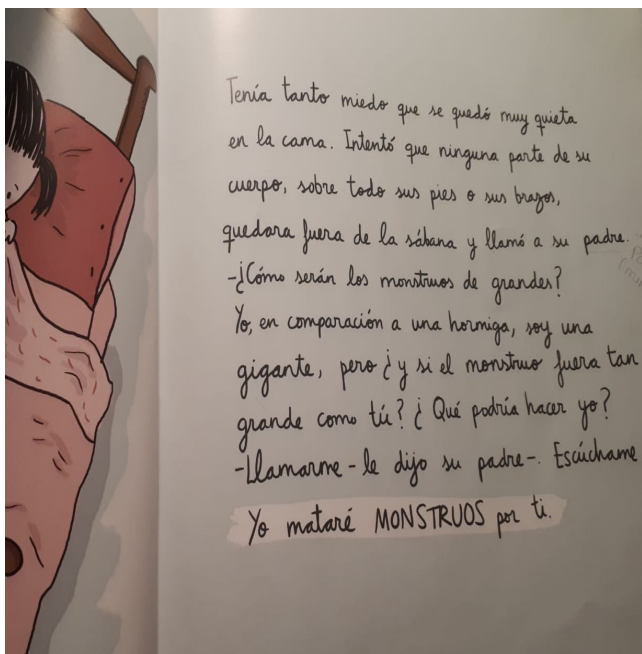 Tenía tanto miedo que se quedó muy quieta
en la cama. Intentó que ninguna parte de su
cuerpo, sobre todo sus pies o sus brazos,
quedara fuera de la sábana y llamó a su padre.
-¿Cómo serán los monstruos de grandes?
Yo, en comparación a una hormiga, soy una
gigante, pero ¿y si el monstruo fuera tan
grande como tú? ¿Qué podría hacer yo?
-Llamarme-le dijo su padre-. Escúchame
Yo mataré MONSTRUOS por ti.